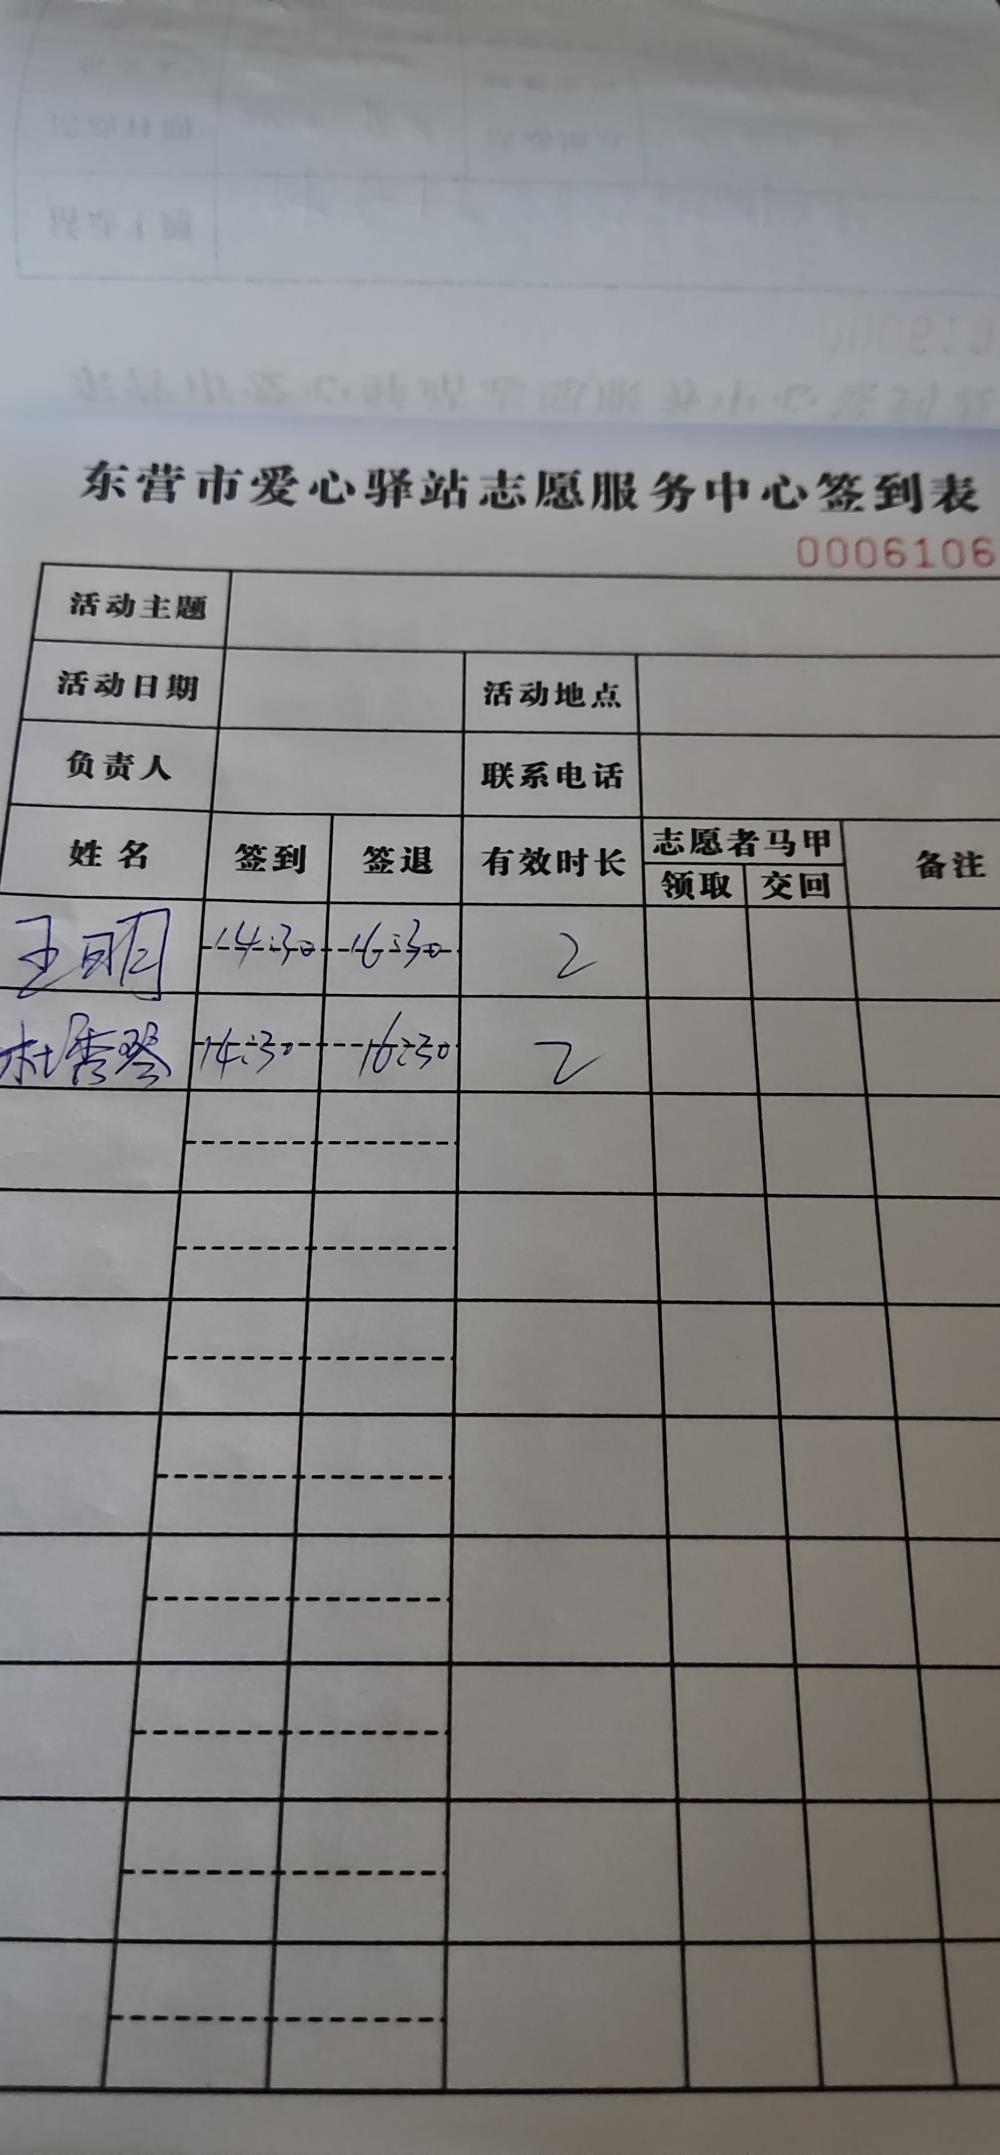 东营市爱心驿站志愿服务中心签到表
0006106
活动主题
活动日期 活动地点
负责人 联系电话
姓名 签到 签退 有效时长 志愿者马甲 备注
领取 交回
王明 14:30 16:30 2
杜秀琴 14:30 16:30 2